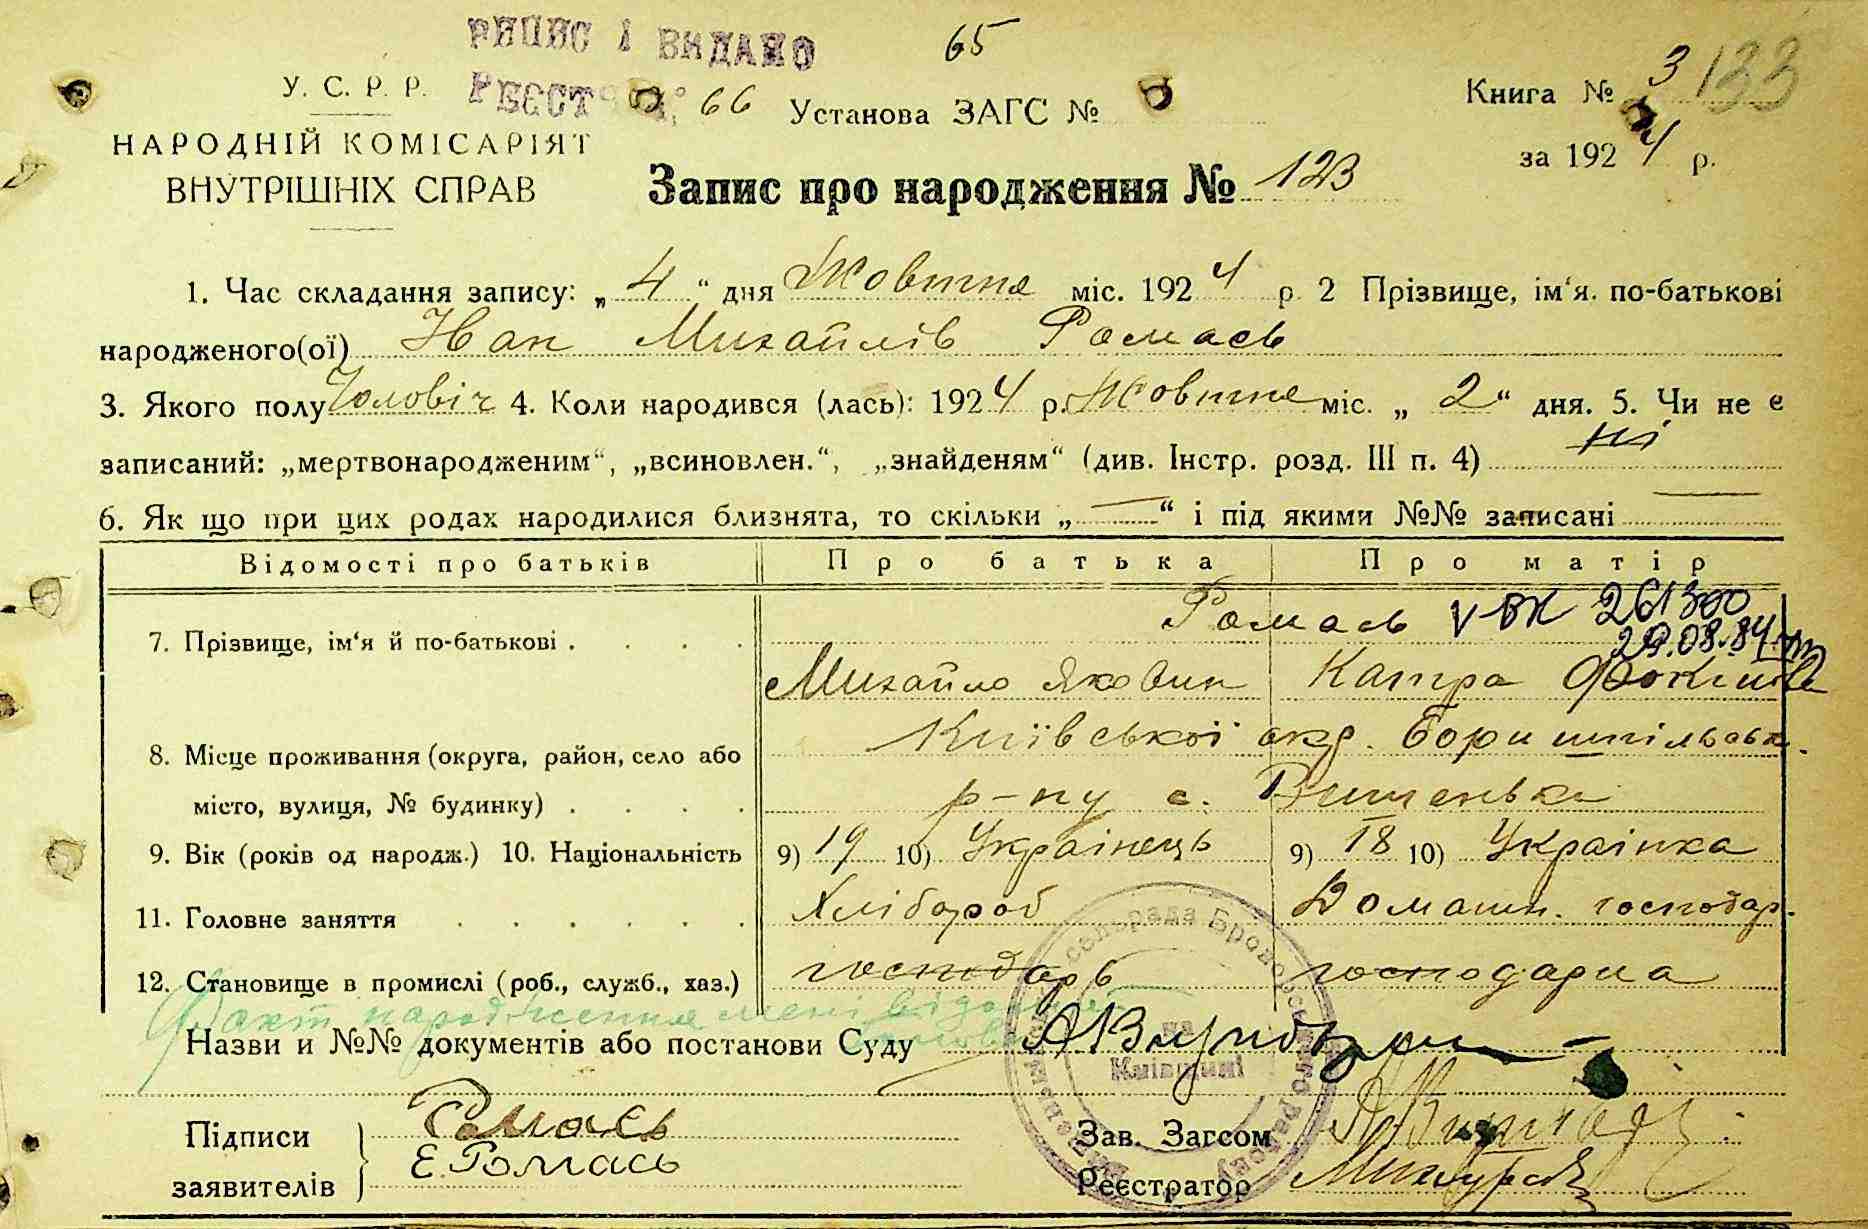 ВИПИС І ВИДАНО 65
У. С. Р. Р. РЕЄСТР № 66 Установа ЗАГС № Книга № 3 133
НАРОДНІЙ КОМІСАРІЯТ за 1924 р.
ВНУТРІШНІХ СПРАВ Запис про народження № 123
1. Час складання запису: „4“ дня Жовтня міс. 1924 р. 2 Прізвище, ім‘я. по-батькові
народженого(ої) Іван Михайлів Ромась
3. Якого полу Чоловіч 4. Коли народився (лась): 1924 р. Жовтня міс. „2“ дня. 5. Чи не є
записаний: „мертвонародженим“, „всиновлен.“, „знайденям“ (див. Інстр. розд. III п. 4) ні
6. Як що при цих родах народилися близнята, то скільки „—“ і під якими №№ записані —
Відомості про батьків Про батька Про матір
Ромась V-БК 261300
7. Прізвище, ім‘я й по-батькові . . . . 29.08.84
Михайло Яковин Катра Фокіївна
Київської окр. Боришпільськ.
8. Місце проживання (округа, район, село або
місто, вулиця, № будинку) . . . . р-ну с. Вишеньки
9. Вік (років од народж.) 10. Національність 9) 19 10) Українець 9) 18 10) Українка
11. Головне заняття . . . . . . Хлібороб Домашн. господар.
12. Становище в промислі (роб., служб., хаз.) господарь господарка
Факт народження мені відомий
Назви и №№ документів або постанови Суду
сельрада Броварського району
на Київщині
Підписи Ромась Зав. Загсом
заявителів Е. Ромась Реєстратор